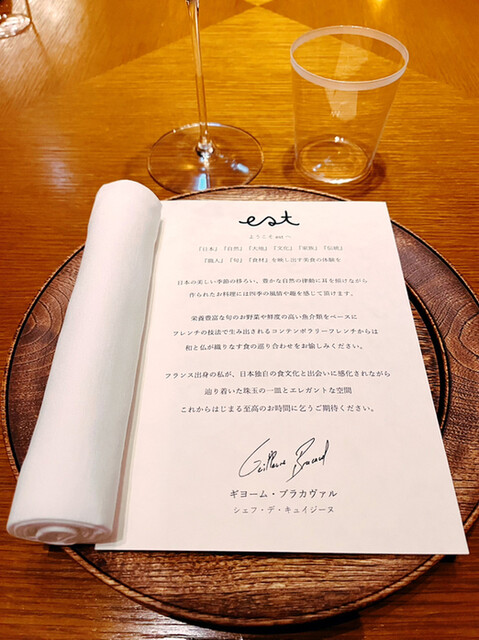 est
ようこそ est へ
『日本』『自然』『大地』『文化』『家族』『伝統』
『職人』『旬』『食材』を映し出す美食の体験を
日本の美しい季節の移ろい、豊かな自然の律動に耳を傾けながら
作られたお料理には四季の風情や趣を感じて頂けます。
栄養豊富な旬のお野菜や鮮度の高い魚介類をベースに
フレンチの技法で生み出されるコンテンポラリーフレンチからは
和と仏が織りなす食の巡り合わせをお愉しみください。
フランス出身の私が、日本独自の食文化と出会いに感化されながら
辿り着いた珠玉の一皿とエレガントな空間
これからはじまる至高のお時間に乞うご期待ください。
Guillaume Bracaval
ギヨーム・ブラカヴァル
シェフ・デ・キュイジーヌ